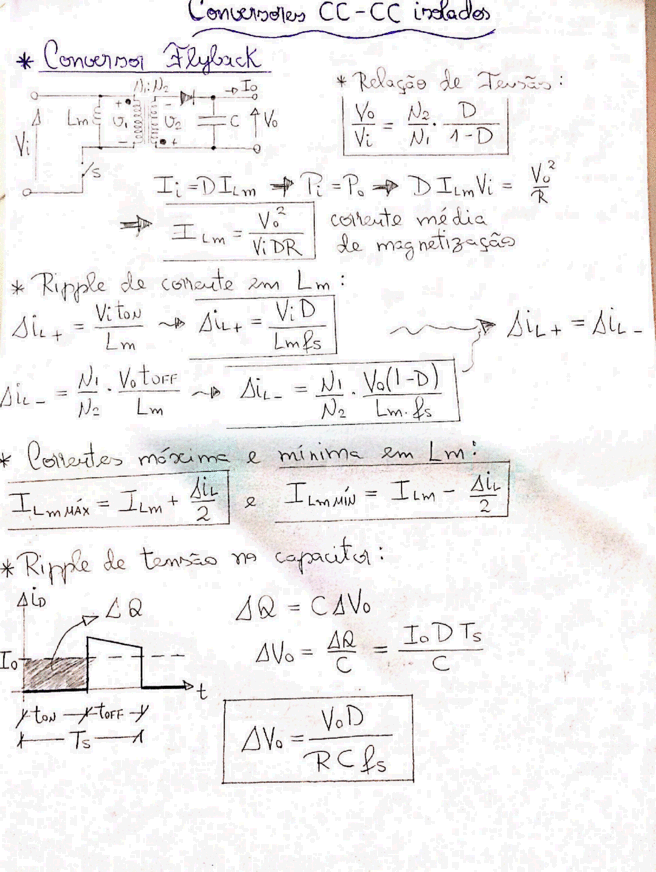 Conversores CC-CC isolados
* Conversor Flyback
N1:N2
Io
Lm
+
υ1
-
-
υ2
+
C
Vo
Vi
S
* Relação de Tensão:
Vo/Vi = N2/N1 · D/1-D
Ii = D ILm ⇒ Pi = Po ⇒ D ILm Vi = Vo²/R
⇒ ILm = Vo²/ViDR corrente média
de magnetização
* Ripple de corrente em Lm:
ΔiL+ = Vi tON/Lm ⇝ ΔiL+ = Vi D/Lm fs
ΔiL+ = ΔiL-
ΔiL- = N1/N2 · Vo tOFF/Lm ⇝ ΔiL- = N1/N2 · Vo(1-D)/Lm·fs
* Correntes máxima e mínima em Lm:
ILm MÁX = ILm + ΔiL/2 e ILm MÍN = ILm - ΔiL/2
* Ripple de tensão no capacitor:
iD
ΔQ
Io
t
tON tOFF
Ts
ΔQ = C ΔVo
ΔVo = ΔQ/C = Io D Ts/C
ΔVo = Vo D/R C fs